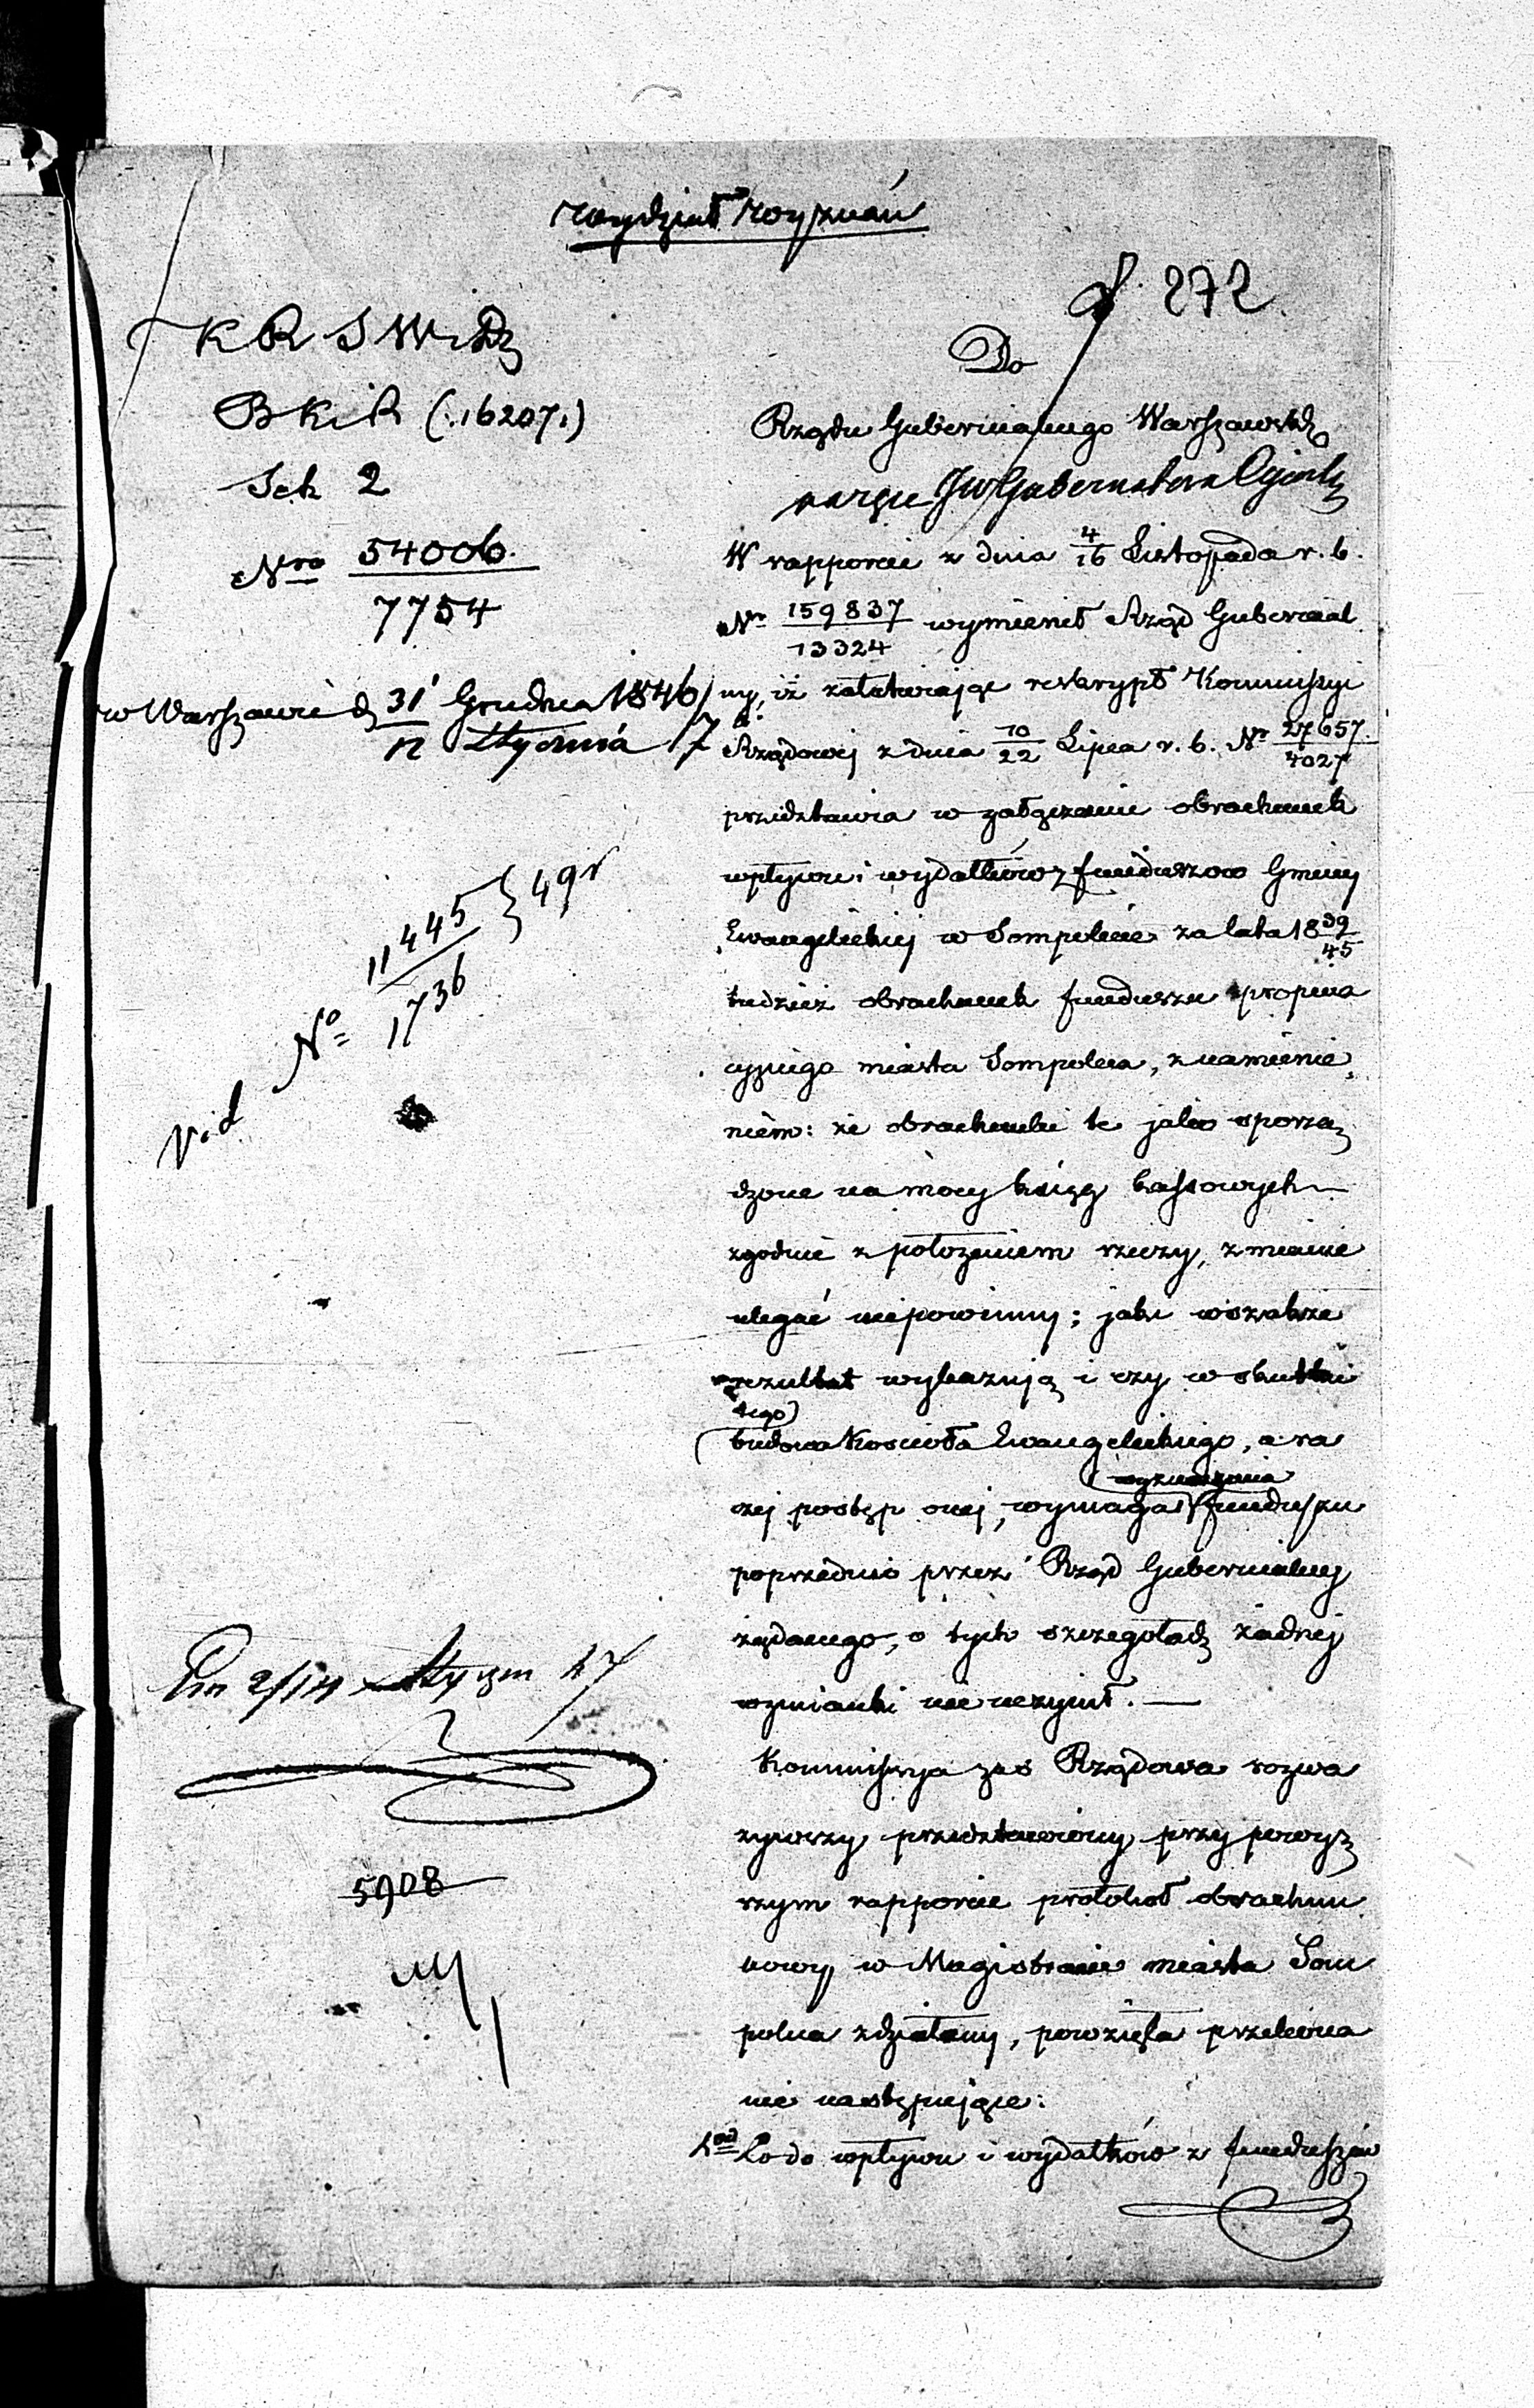 Wydział Wyznań
272.
K R S W i D
B K i R (:16207:)
Sek 2
Nro 54006.
7754
w Warszawie d 31 Grudnia 1846/
12 Stycznia 7
Vid Nº 11445 } 49r
1736
2/14 Styczn 47
5908
Do
Rządu Gubernialnego Warszawsk
JW Gubernatora
W rapporcie z dnia 4/16 Listopada r. b.
Nr 159837/13324 wymienił Rząd Gubernial
ny, iż załatwiając reskrypt Kommissyi
Rządowej z dnia 10/22 Lipca r. b. Nr 27657/4027
przedstawia w załączeniu obrachunek
wpływu i wydatków z funduszow Gminy
Ewangelickiej w Sompolnie za lata 1839/45
tudzież obrachunek funduszu propina
cyjnego miasta Sompolna, z namienie
niem: że obrachunki te jako sporzą
dzone na mocy ksiąg kassowych
zgodnie z położeniem rzeczy, zmianie
ulegać niepowinny; jaki wszakże
rezultat wykazują i czy w skutku
tego
budowa Kościoła Ewangelickiego, a ra
wyznaczenia
czej postęp onej, wymaga funduszu
poprzednio przez Rząd Gubernialny
żądanego, o tych szczegołach żadnej
wzmianki nie uczynił. —
Kommissya zas Rządowa rozwa
żywszy przedstawiony przy powyż
szym rapporcie protokoł obrachun
kowy w Magistracie miasta Som
polna zdziałany, powzięła przekona
nie następujące:
1od Co do wpływu i wydatków z funduszów